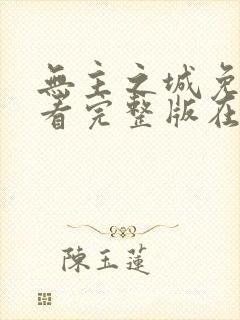 無主之城免
看完整版在
陳玉蓮